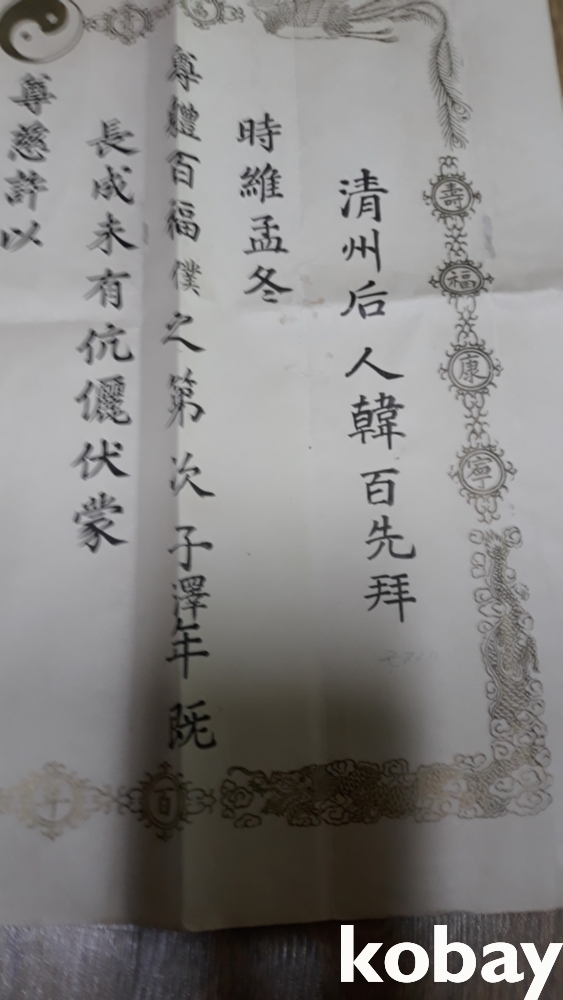 清州后人韓百先拜
時維孟冬
尊體百福僕之第次子澤年旣
長成未有伉儷伏蒙
尊慈許以
壽福康寧
百年
kobay